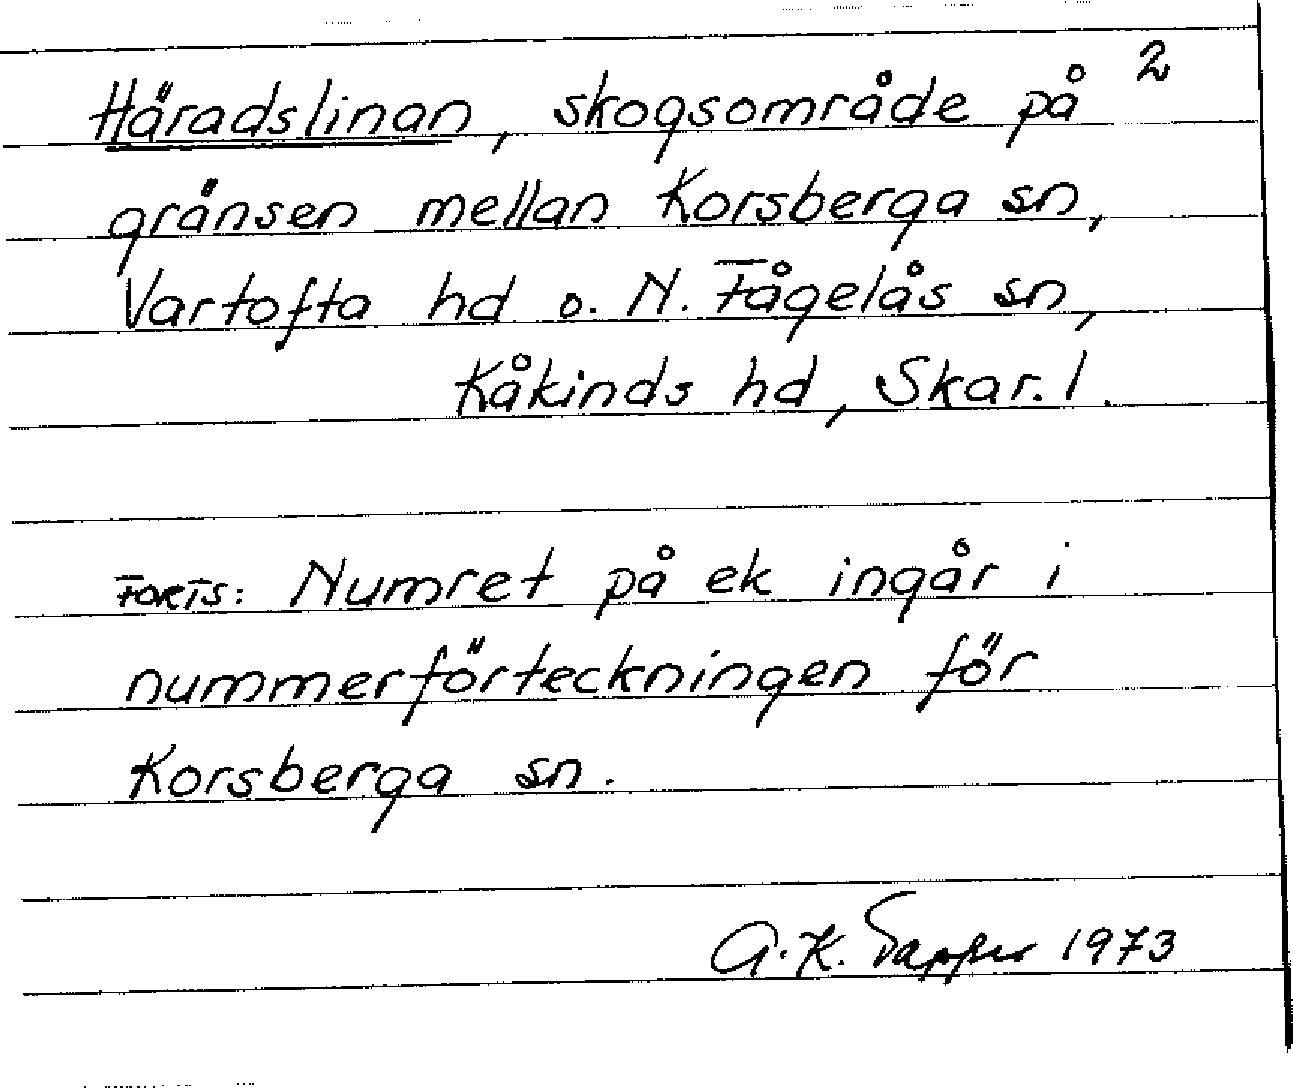 2
Häradslinan, skogsområde på
gränsen mellan Korsberga sn,
Vartofta hd o. N. Fågelås sn,
Kåkinds hd, Skar. l.
FORTS: Numret på ek ingår i
nummerförteckningen för
Korsberga sn.
A.K. Tapper 1973